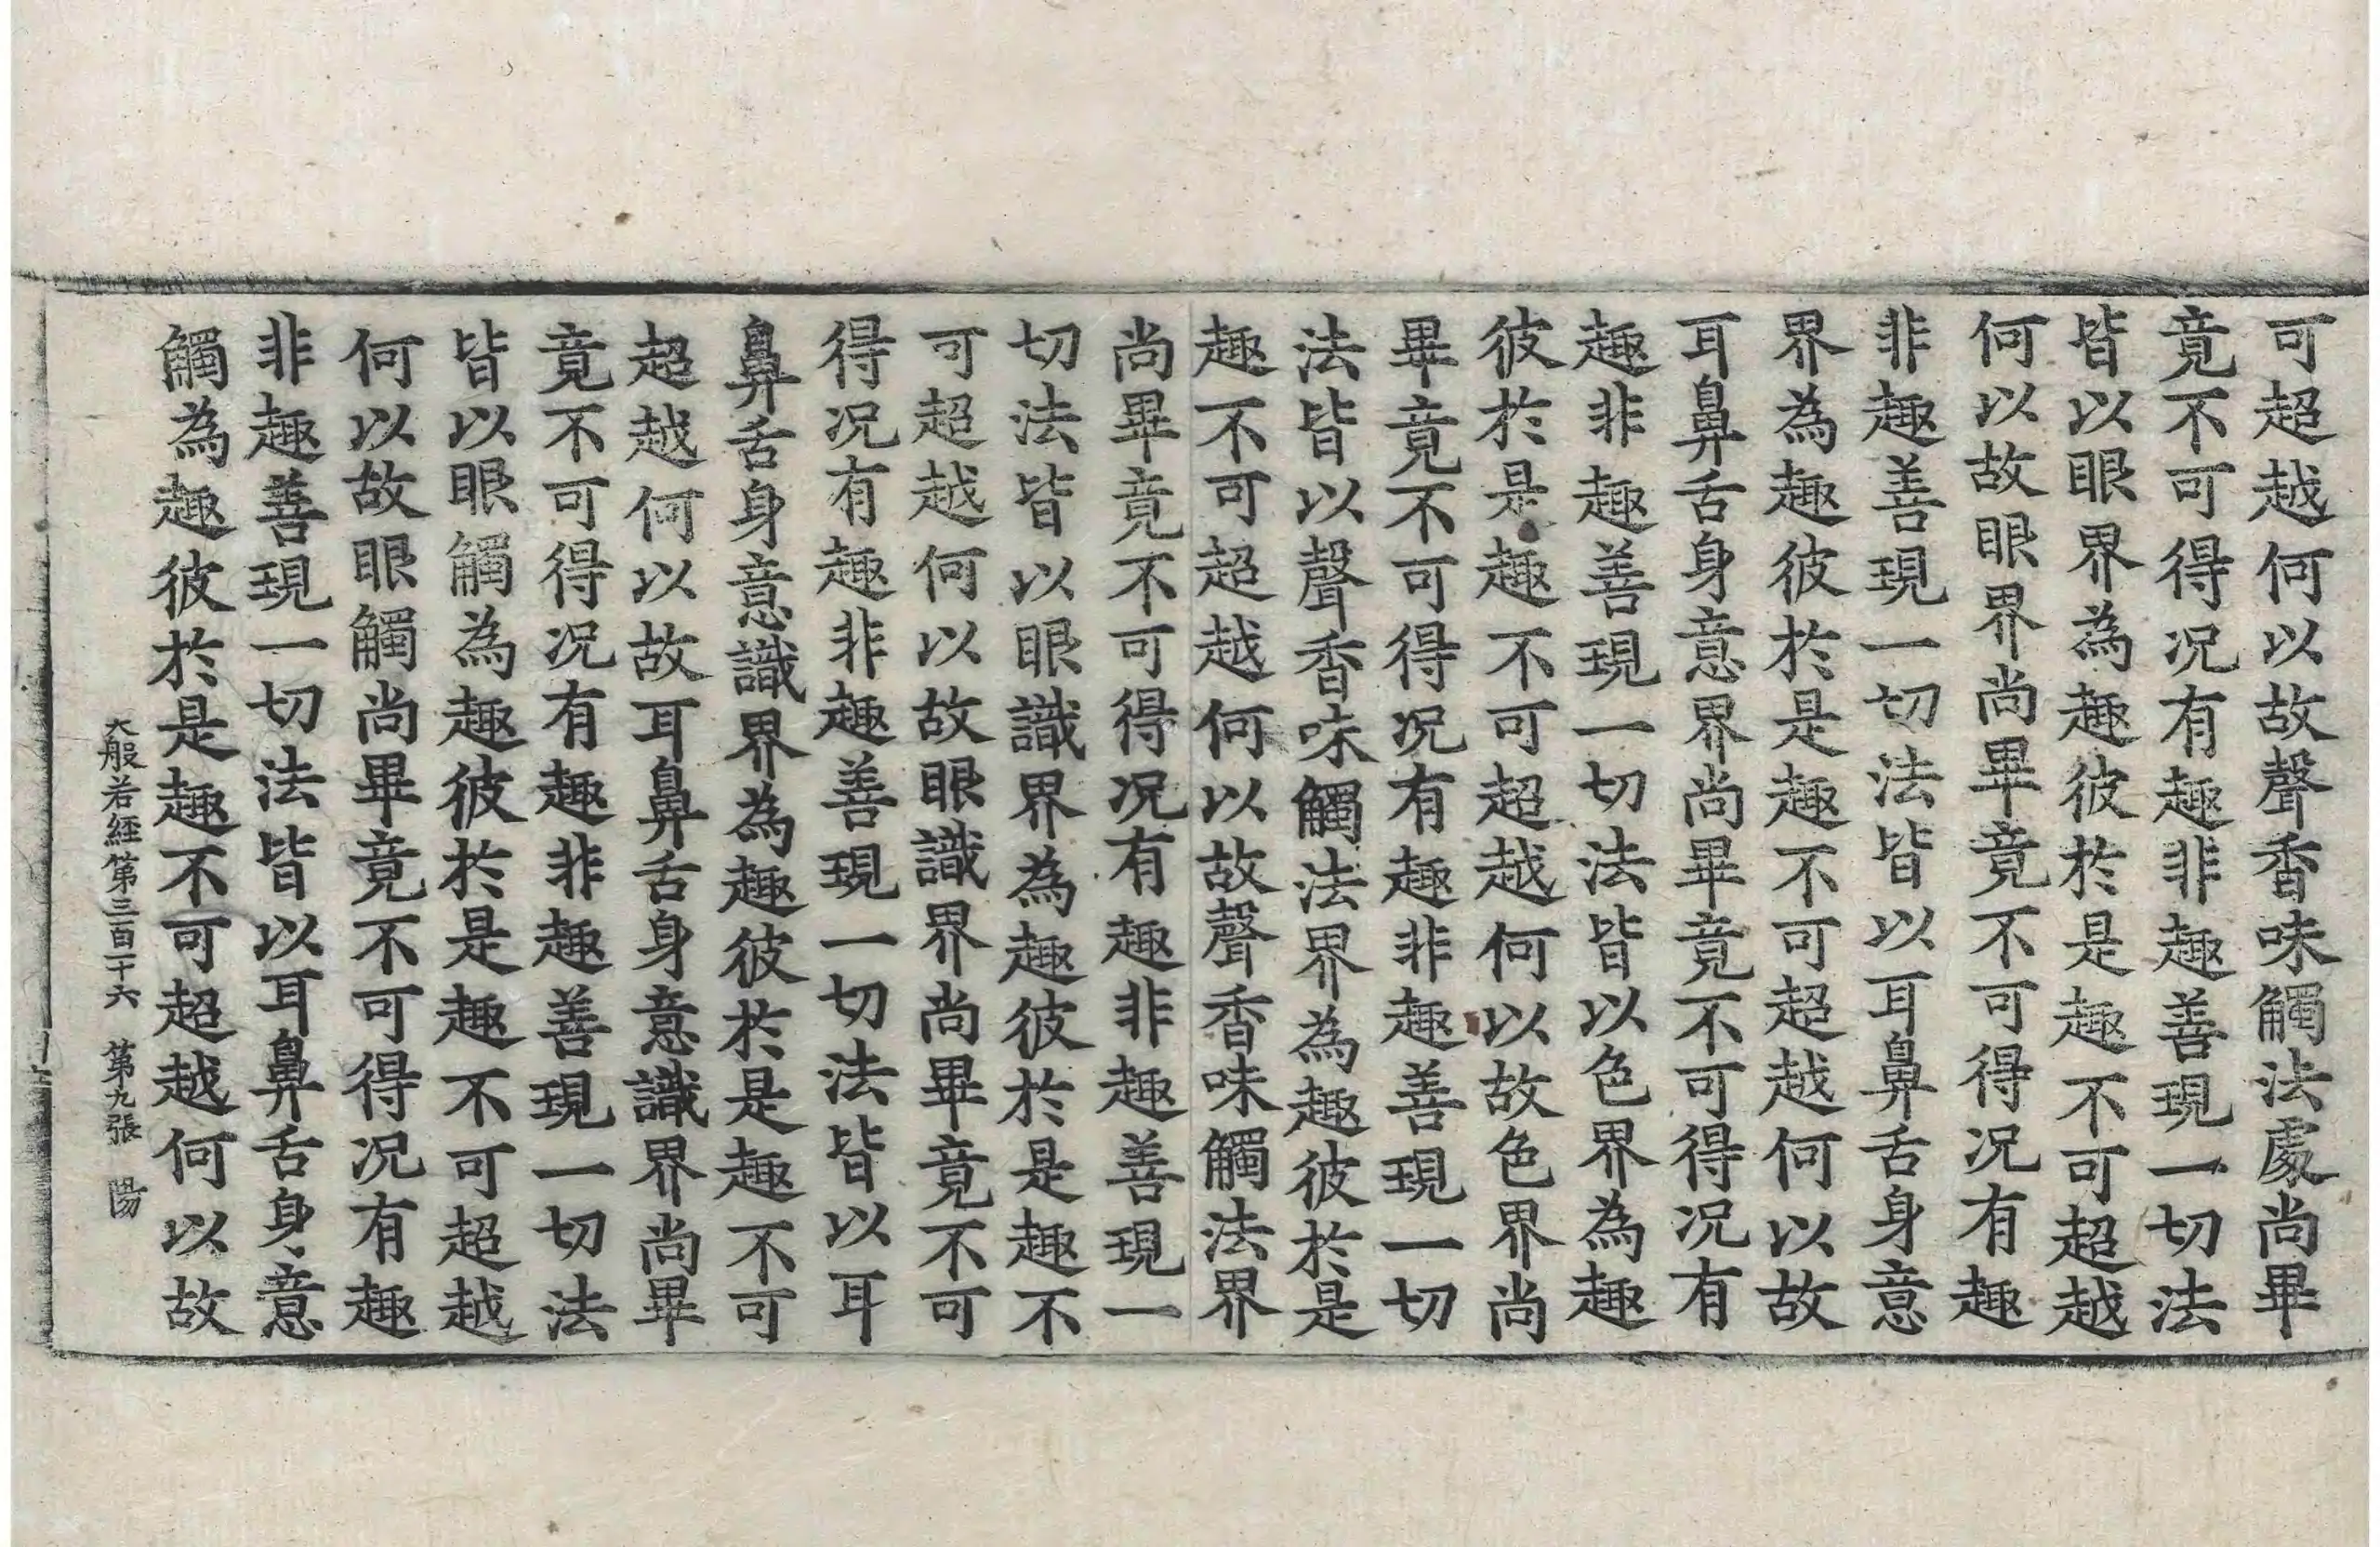 可超越何以故聲香味觸法處尚畢
竟不可得况有趣非趣善現一切法
皆以眼界為趣彼於是趣不可超越
何以故眼界尚畢竟不可得况有趣
非趣善現一切法皆以耳鼻舌身意
界為趣彼於是趣不可超越何以故
耳鼻舌身意界尚畢竟不可得况有
趣非趣善現一切法皆以色界為趣
彼於是趣不可超越何以故色界尚
畢竟不可得况有趣非趣善現一切
法皆以聲香味觸法界為趣彼於是
趣不可超越何以故聲香味觸法界
尚畢竟不可得况有趣非趣善現一
切法皆以眼識界為趣彼於是趣不
可超越何以故眼識界尚畢竟不可
得况有趣非趣善現一切法皆以耳
鼻舌身意識界為趣彼於是趣不可
超越何以故耳鼻舌身意識界尚畢
竟不可得况有趣非趣善現一切法
皆以眼觸為趣彼於是趣不可超越
何以故眼觸尚畢竟不可得况有趣
非趣善現一切法皆以耳鼻舌身意
觸為趣彼於是趣不可超越何以故
大般若經第三百二十六 第九張 陽